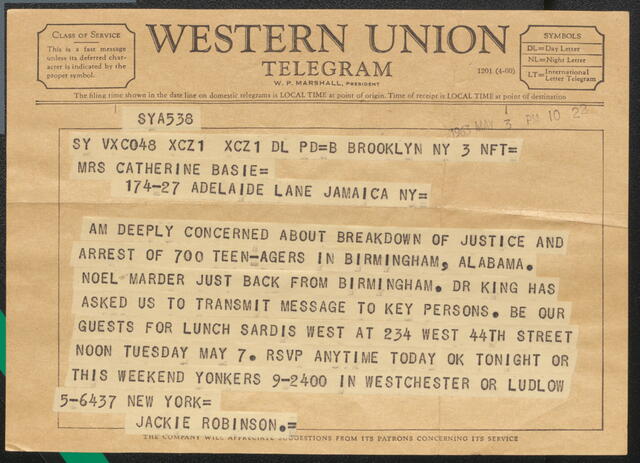 CLASS OF SERVICE
This is a fast message
unless its deferred char-
acter is indicated by the
proper symbol.
WESTERN UNION
TELEGRAM
W. P. MARSHALL, PRESIDENT
1201 (4-60)
SYMBOLS
DL=Day Letter
NL=Night Letter
LT=International Letter Telegram
The filing time shown in the date line on domestic telegrams is LOCAL TIME at point of origin. Time of receipt is LOCAL TIME at point of destination
SYA538
1963 MAY 3 PM 10 22
SY VXC048 XCZ1 XCZ1 DL PD=B BROOKLYN NY 3 NFT=
MRS CATHERINE BASIE=
174-27 ADELAIDE LANE JAMAICA NY=
AM DEEPLY CONCERNED ABOUT BREAKDOWN OF JUSTICE AND
ARREST OF 700 TEEN-AGERS IN BIRMINGHAM, ALABAMA.
NOEL MARDER JUST BACK FROM BIRMINGHAM. DR KING HAS
ASKED US TO TRANSMIT MESSAGE TO KEY PERSONS. BE OUR
GUESTS FOR LUNCH SARDIS WEST AT 234 WEST 44TH STREET
NOON TUESDAY MAY 7. RSVP ANYTIME TODAY OK TONIGHT OR
THIS WEEKEND YONKERS 9-2400 IN WESTCHESTER OR LUDLOW
5-6437 NEW YORK=
JACKIE ROBINSON.=
THE COMPANY WILL APPRECIATE SUGGESTIONS FROM ITS PATRONS CONCERNING ITS SERVICE